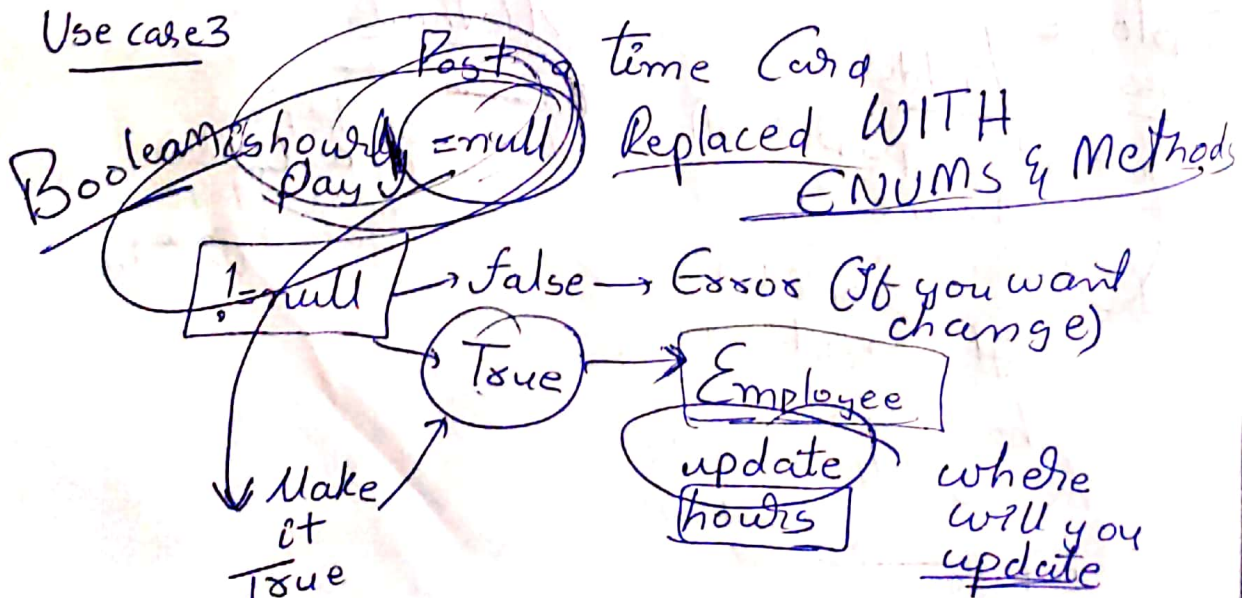 Use case3
Post a time Card
Boolean ishourly =null Replaced WITH
pay ENUMS & Methods
!=null → false → Error (If you want
change)
True → Employee
update where
hours will you
update
Make
it
True